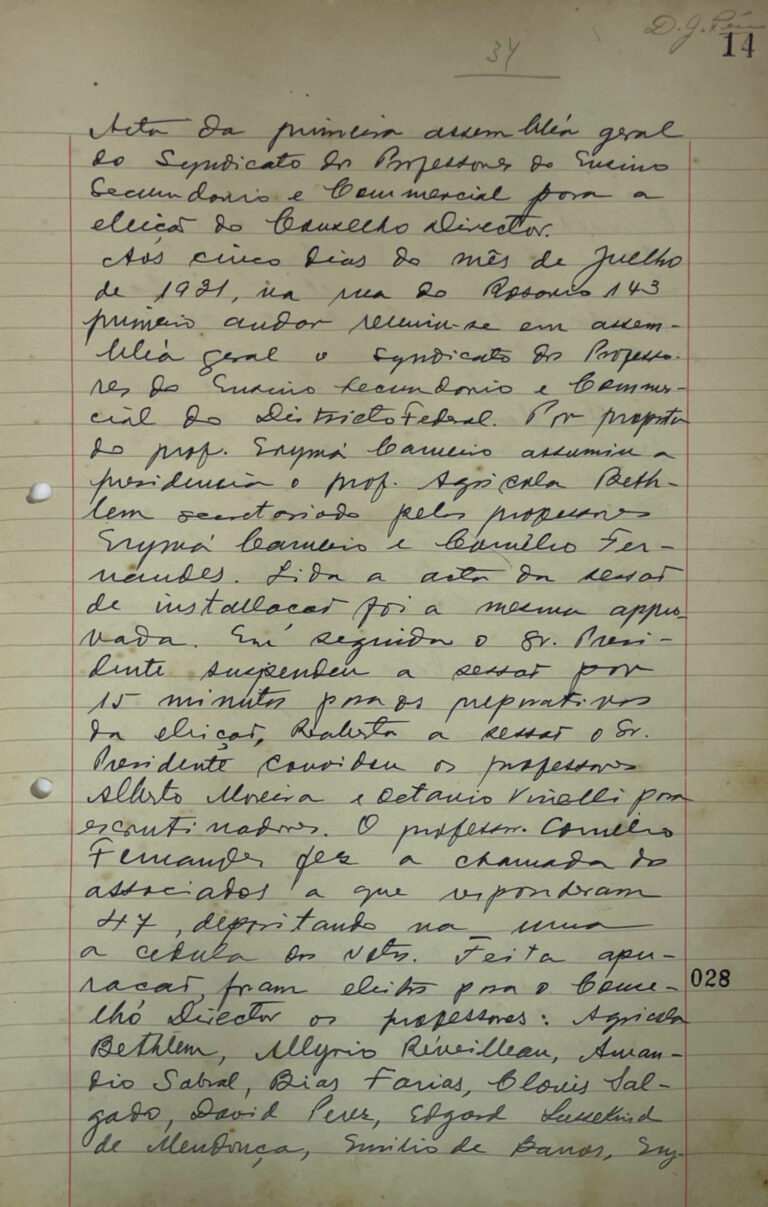 D. J.
14
34
Acta da primeira assembléa geral
do Syndicato dos Professores do Ensino
Secundario e Commercial para a
eleiçaõ do Conselho Director.
Aos cinco dias do mês de Julho
de 1931, na rua do Rosario 143
primeiro andar reuniu-se em assem-
bléa geral o Syndicato dos Professo-
res do Ensino Secundario e Commer-
cial do Districto Federal. Por proposta
do prof. Erymá Carneiro assumiu a
presidencia o prof. Agricola Beth-
lem secretariado pelos professores
Erymá Carneiro e Cornélio Fer-
nandes. Lida a acta da sessaõ
de installacaõ foi a mesma appro-
vada. Em seguida o Sr. Presi-
dente suspendeu a sessaõ por
15 minutos para os preparativos
da eleiçaõ, Reaberta a sessaõ o Sr.
Presidente convidou os professores
Alberto Moreira e Octavio Vinelli para
escrutinadores. O professor Cornélio
Fernandes fez a chamada dos
associados a que responderam
47, depositando na urna
a cedula dos votos. Feita apu-
racaõ, foram eleitos para o Conse-
lho Director os professores: Agricola
028
Bethlem, Allyrio Réveilleau, Aman-
dio Sabral, Bias Farias, Clovis Sal-
gado, David Perez, Edgard Sussekind
de Mendonça, Emilio de Barros, Ery-